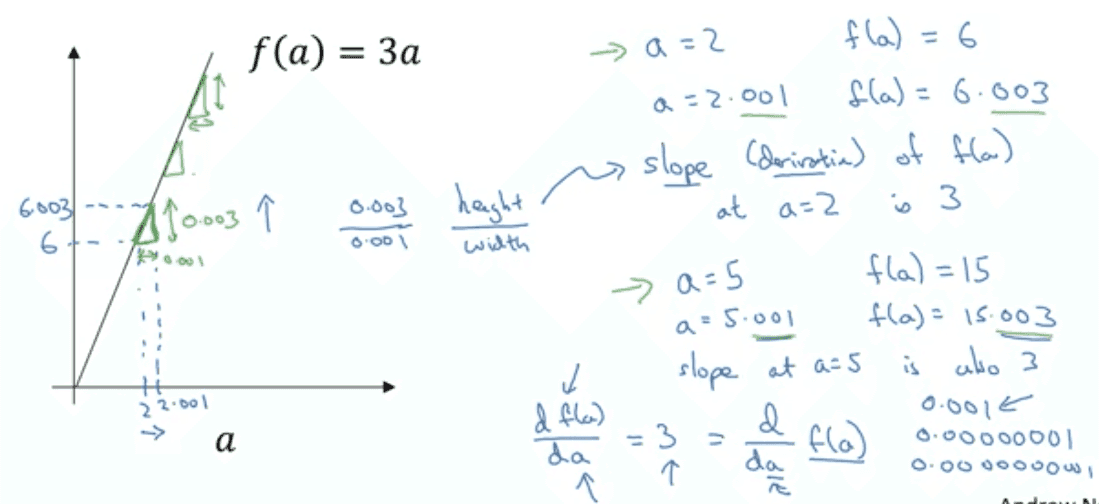 f(a) = 3a
6.003
6
0.003
0.001
2 2.001
a
0.003
0.001
height
width
a = 2 f(a) = 6
a = 2.001 f(a) = 6.003
slope (derivative) of f(a)
at a=2 is 3
a = 5 f(a) = 15
a = 5.001 f(a) = 15.003
slope at a=5 is also 3
d f(a)
da
= 3 =
d
da
f(a)
0.001
0.00000001
Andrew N